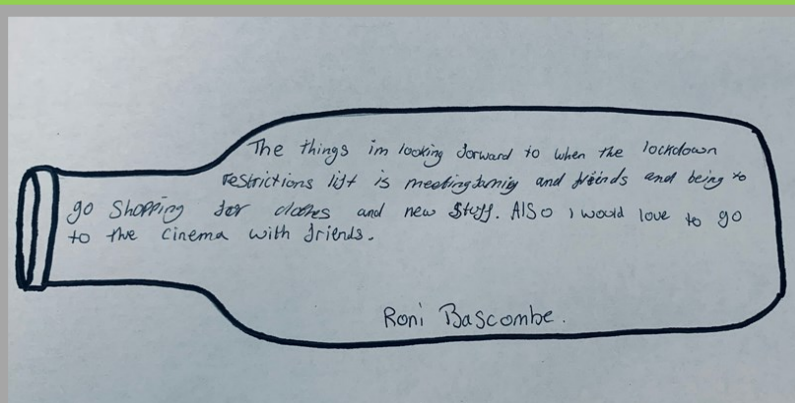 The things im looking forward to when the lockdown
restrictions lift is meeting family and freinds and being to
go shopping for clothes and new stuff. Also i would love to go
to the cinema with friends.
Roni Bascombe.